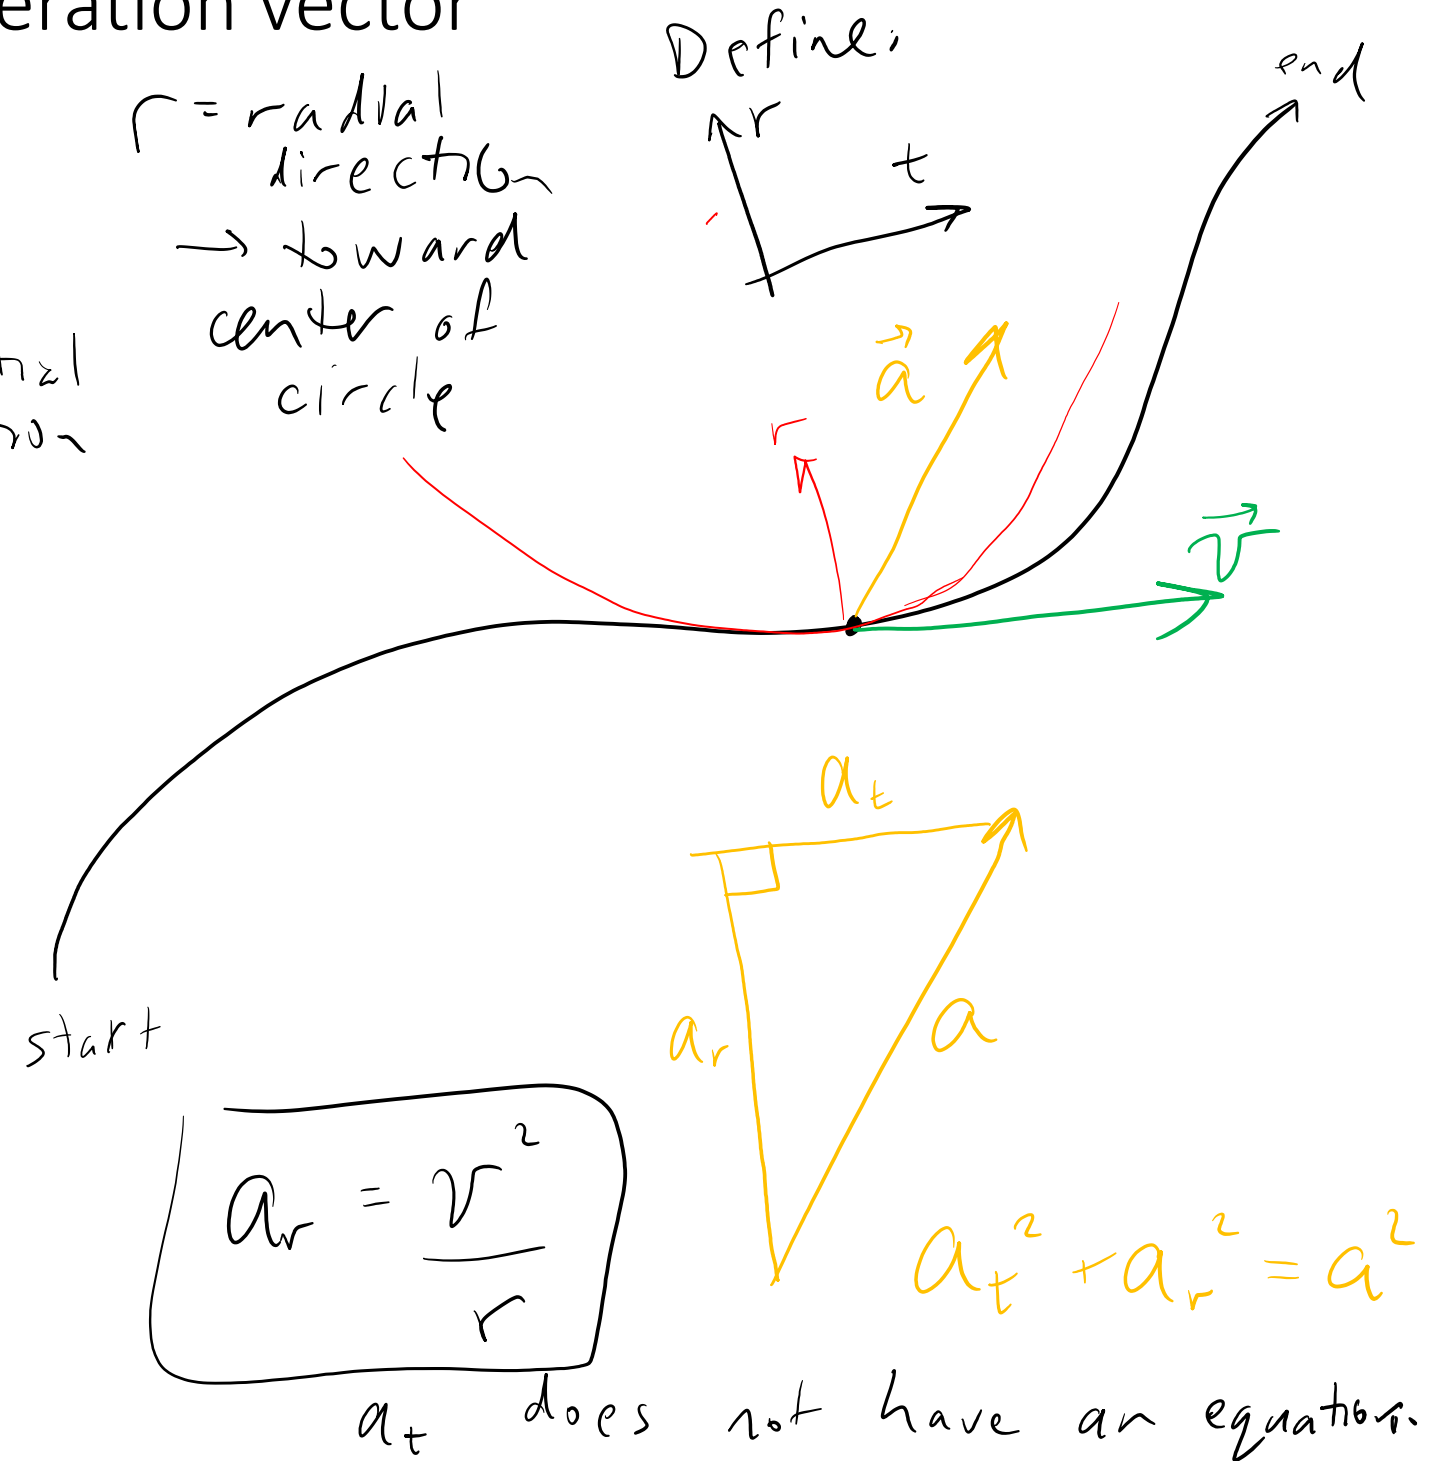 eration vector
Define:
r = radial
direction
→ toward
center of
circle
r
t
end
r
a⃗
v⃗
start
a_t
a_r
a
a_r = v² / r
a_t² + a_r² = a²
a_t does not have an equation.